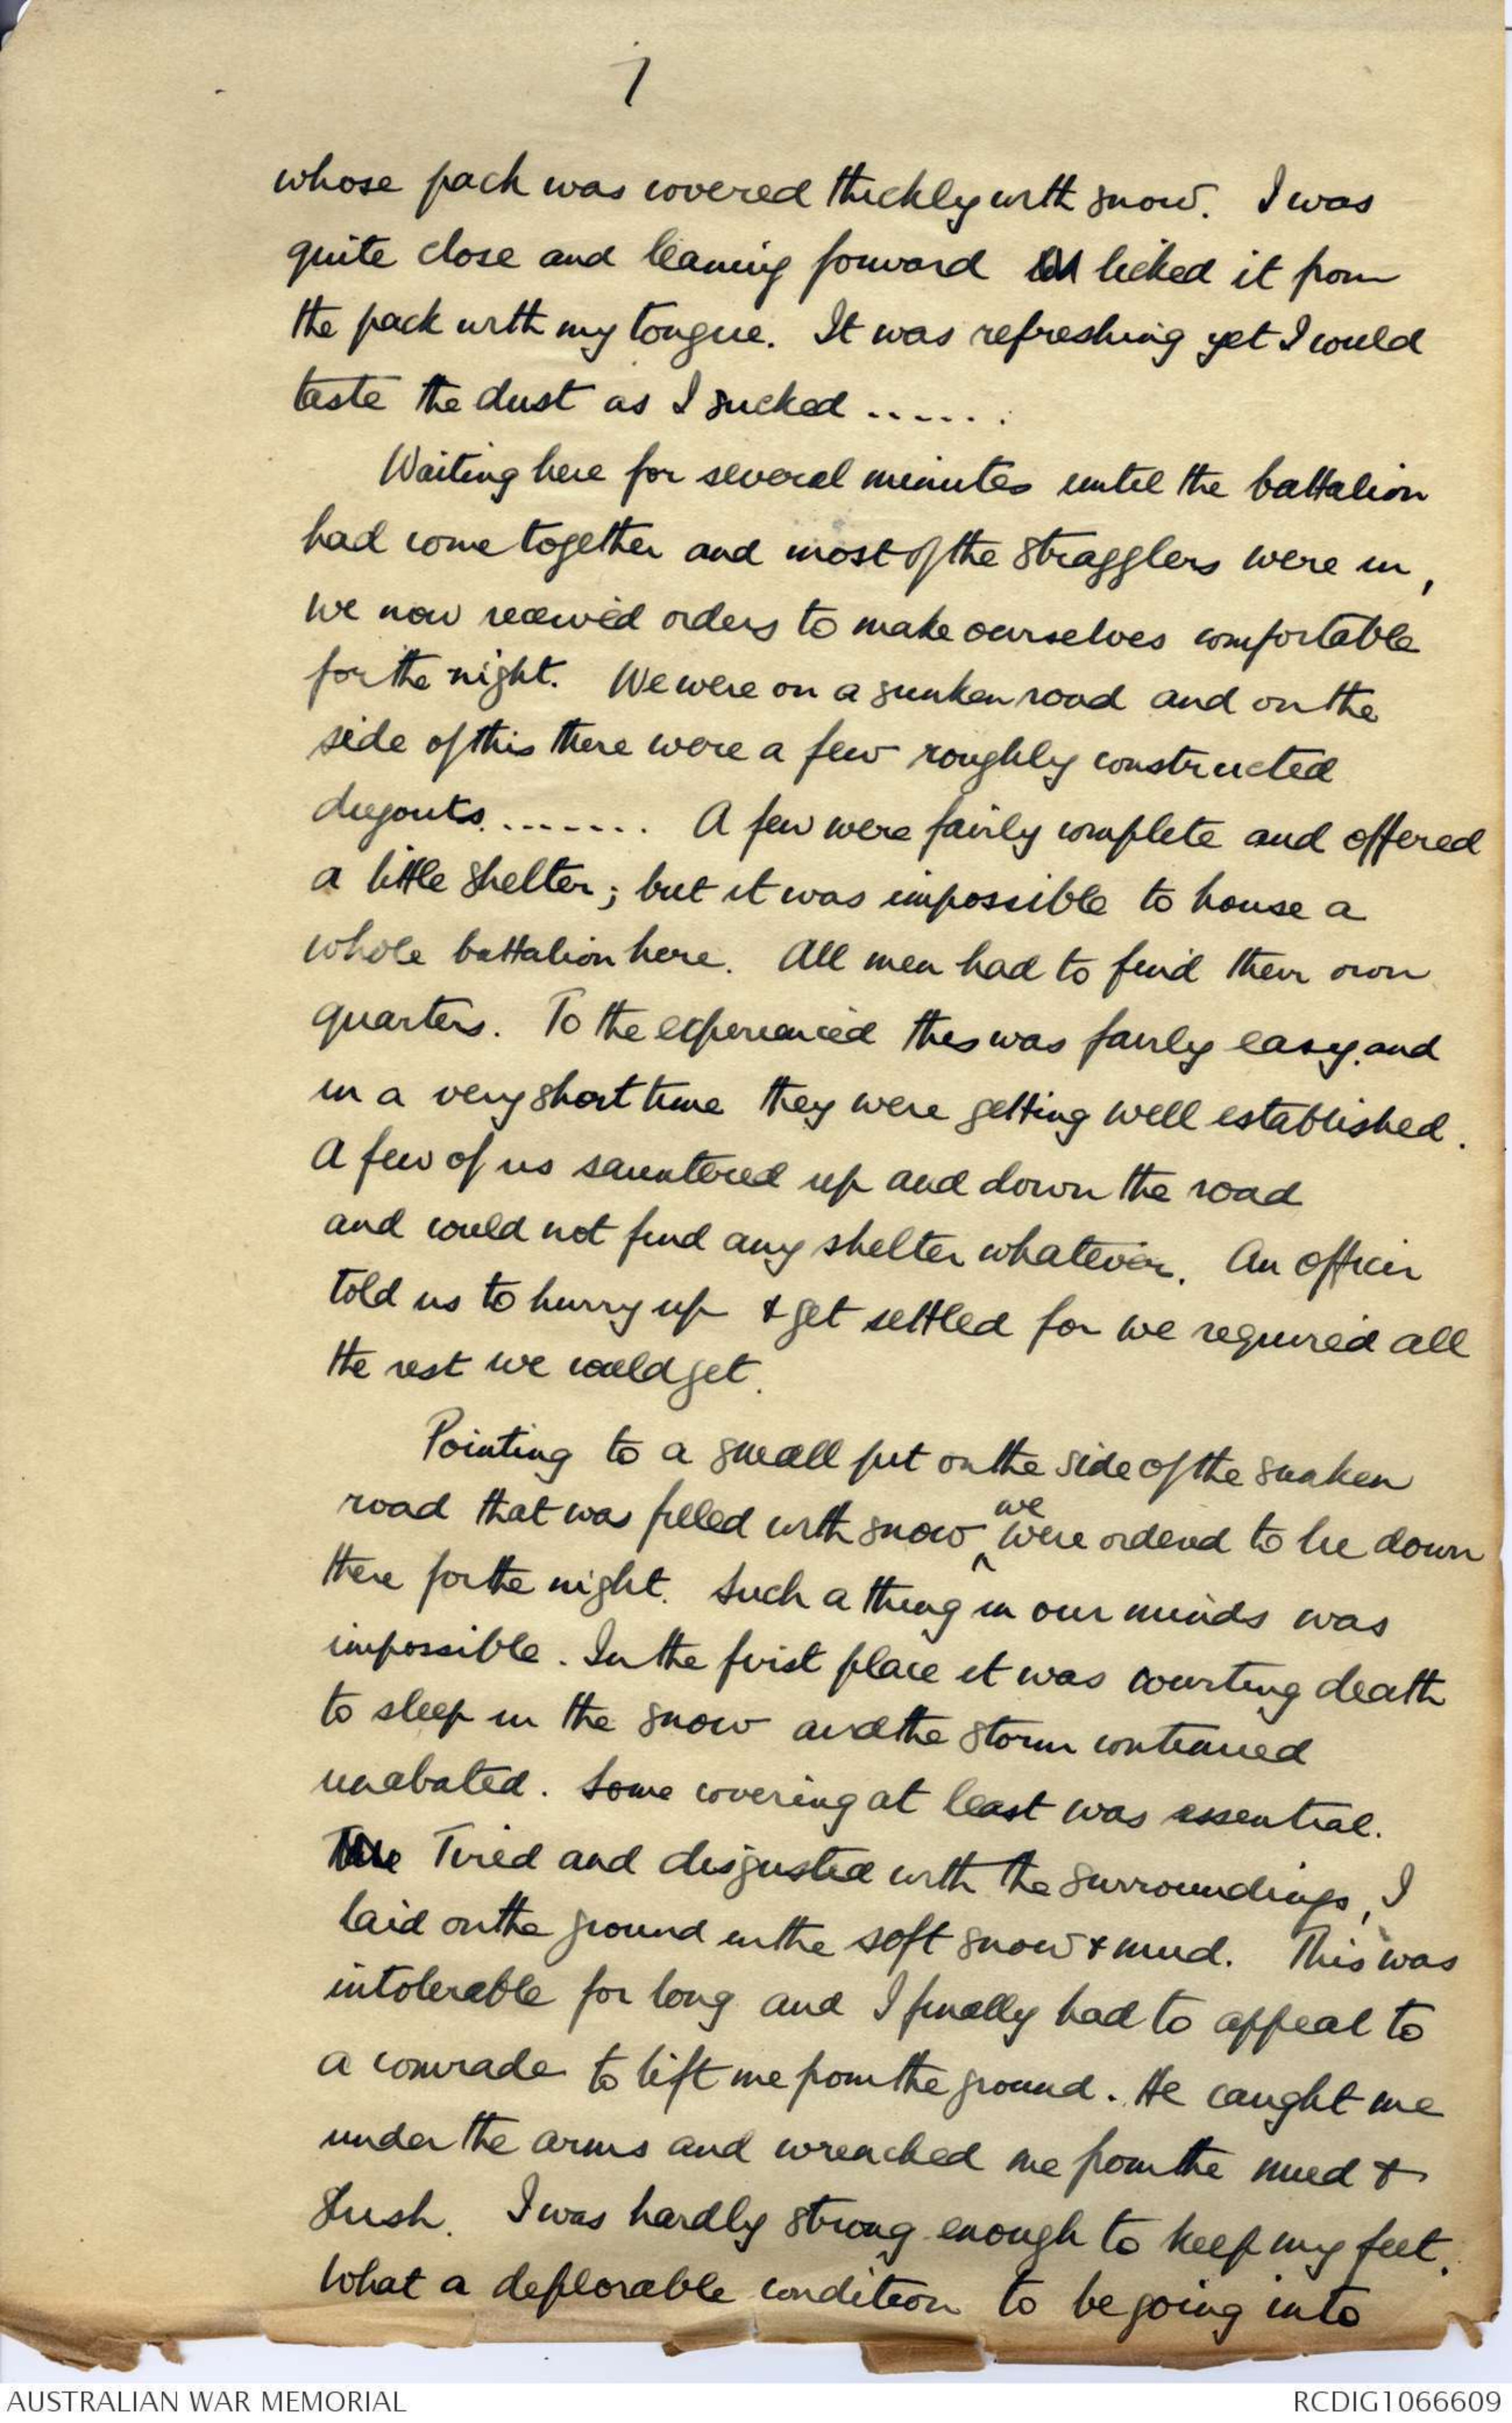 7
whose pack was covered thickly with snow. I was
quite close and leaning forward licked it from
the pack with my tongue. It was refreshing yet I could
taste the dust as I sucked ......
Waiting here for several minutes until the battalion
had come together and most of the stragglers were in,
we now received orders to make ourselves comfortable
for the night. We were on a sunken road and on the
side of this there were a few roughly constructed
dugouts........ A few were fairly complete and offered
a little shelter; but it was impossible to house a
whole battalion here. All men had to find their own
quarters. To the experienced this was fairly easy and
in a very short time they were getting well established.
A few of us sauntered up and down the road
and could not find any shelter whatever. An officer
told us to hurry up & get settled for we required all
the rest we could get.
Pointing to a small pit on the side of the sunken
road that was filled with snow we were ordered to lie down
there for the night. Such a thing in our minds was
impossible. In the first place it was courting death
to sleep in the snow and the storm continued
unabated. Some covering at least was essential.
Tired and disgusted with the surroundings, I
laid on the ground in the soft snow & mud. This was
intolerable for long and I finally had to appeal to
a comrade to lift me from the ground. He caught me
under the arms and wrenched me from the mud &
slush. I was hardly strong enough to keep my feet.
What a deplorable condition to be going into
AUSTRALIAN WAR MEMORIAL
RCDIG1066609